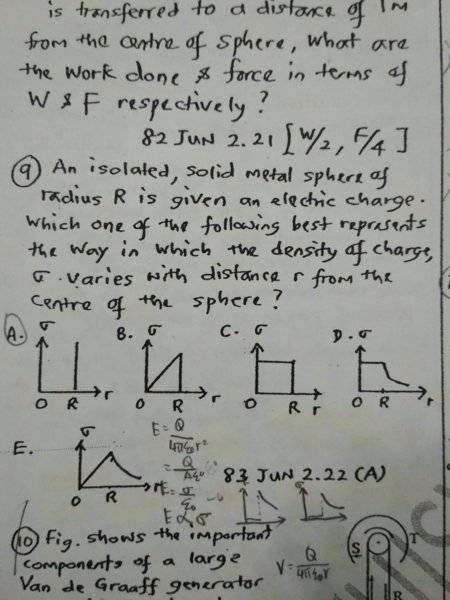 is transferred to a distance of 1M
from the centre of sphere, what are
the work done & force in terms of
W & F respectively?
82 JUN 2.21 [W/2, F/4]
(9) An isolated, solid metal sphere of
radius R is given an electric charge.
Which one of the following best represents
the way in which the density of charge,
σ. varies with distance r from the
centre of the sphere?
A. σ B. σ C. σ D. σ
O R r O R r O R r O R r
E. σ
O R r
E = Q/4πε₀r²
= Q/Aε₀
E = σ/ε₀
E α σ
83 JUN 2.22 (A)
(10) Fig. shows the important
components of a large
Van de Graaff generator
V = Q/4πε₀r
S T
R